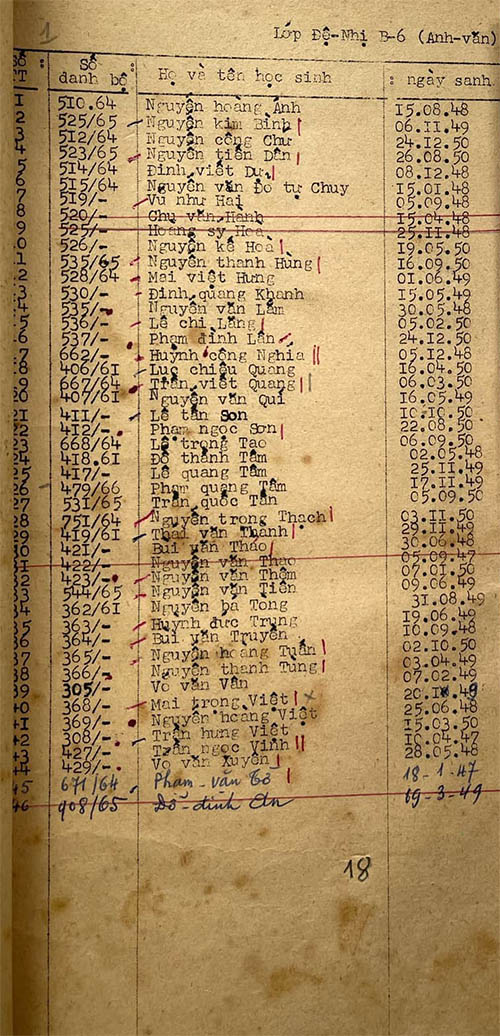 1
Lớp Đệ-Nhị B-6 (Anh-văn)
Số TT : Số danh bộ : Họ và tên học sinh : ngày sanh
1 510.64 Nguyễn hoàng Ánh 15.08.48
2 525/65 Nguyễn kim Bính 06.11.49
3 512/64 Nguyễn công Chư 24.12.50
4 523/65 Nguyễn tiến Dân 26.08.50
5 514/64 Đinh viết Dư 08.12.48
6 515/64 Nguyễn văn Đo tự Chuy 15.01.48
7 519/- Vũ như Hai 05.09.48
8 520/- Chu văn Hanh 15.04.48
9 525/- Hoàng sy Hoa 25.11.48
10 526/- Nguyễn kế Hoà 19.05.50
11 535/65 Nguyễn thanh Hùng 16.09.50
12 528/64 Mai việt Hưng 01.06.49
13 530/- Đinh quang Khanh 15.05.49
14 535/- Nguyễn văn Lâm 30.05.48
15 536/- Lê chi Lăng 05.02.50
16 537/- Phạm đình Lân 24.12.50
17 662/- Huỳnh công Nghĩa 05.12.48
18 406/61 Luc chiêu Quang 16.04.50
19 667/64 Trần viết Quang 06.03.50
20 407/61 Nguyễn văn Quí 16.05.49
21 411/- Lê tấn Son 10.10.50
22 412/- Phạm ngọc Sơn 22.08.50
23 668/64 Lê trọng Tao 06.09.50
24 418.61 Đỗ thành Tâm 02.05.48
25 417/- Lê quang Tâm 25.11.49
26 479/66 Phạm quang Tâm 17.11.49
27 531/65 Trần quốc Tấn 05.09.50
28 751/64 Nguyễn trong Thạch 03.11.50
29 419/61 Thai văn Thanh 29.11.49
30 421/- Bùi văn Thảo 30.06.48
31 422/- Nguyễn văn Thao 05.09.47
32 423/- Nguyễn văn Thêm 07.01.50
33 544/65 Nguyễn văn Tiên 09.06.49
34 362/61 Nguyễn bá Tong 31.08.49
35 363/- Huỳnh đức Trung 19.06.49
36 364/- Bùi văn Truyền 10.09.48
37 365/- Nguyễn hoàng Tuấn 02.10.50
38 366/- Nguyễn thanh Tùng 03.04.49
39 305/- Vo văn Vân 07.02.49
40 368/- Mai trong Việt 20.1 .49
41 369/- Nguyễn hoàng Việt 25.06.48
42 308/- Trần hưng Việt 15.03.50
43 427/- Trần ngọc Vinh 10.04.47
44 429/- Vo văn Xuyên 28.05.48
45 671/64 Phạm-văn Bô 18-1-47
46 908/65 Đỗ-đình Ân 19-3-49
18